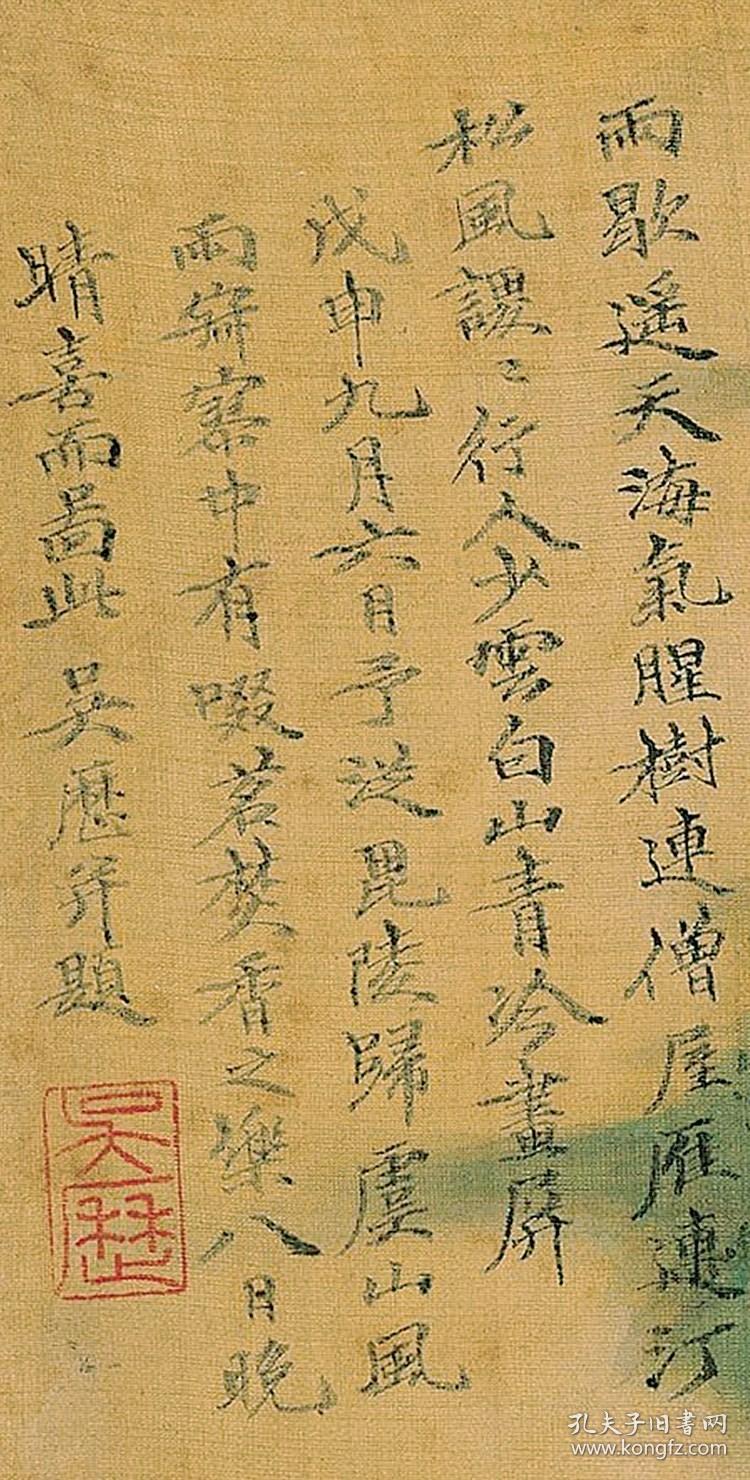 雨歇遥天海氣腥樹連僧屋雁連汀
松風謖〻行人少雲白山青冷畫屏
戊申九月六日予従毘陵歸虞山風
雨寂寥中有啜茗焚香之樂八日晚
晴喜而啚此 吳歷并題
吳歷
孔夫子旧書网
www.kongfz.com